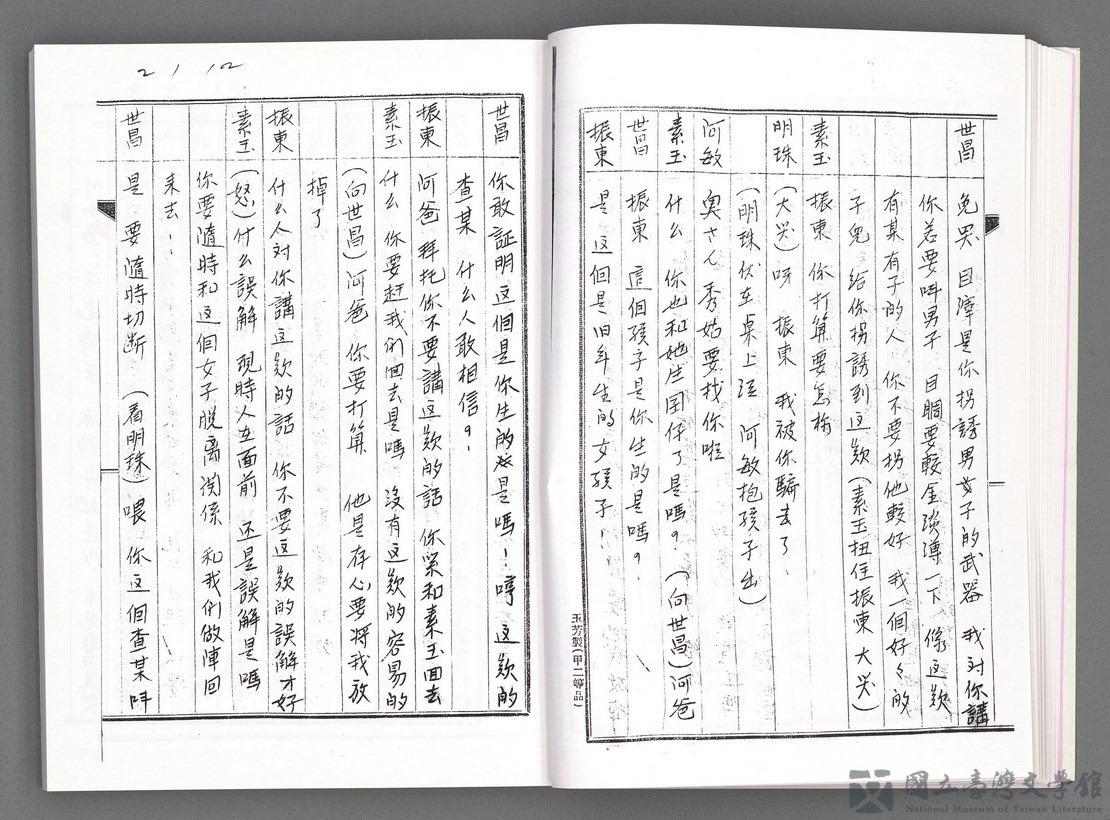 世昌 免哭 目滓是你拐誘男女子的武器 我对你講
你若要呼男子 目睭要較金 淡薄一下 像這欵
有某有子的人 你不要拐他較好 我一個好々的
子兒 給你拐誘到這欵(素玉扭住振東大哭)
素玉 振東 你打算要怎樣
明珠 (大哭)呀 振東 我被你騙去了．
(明珠伏在桌上泣 阿敏抱孩子出)
阿敏 奧さん 秀姑要找你啦
素玉 什么 你也和她生囝仔了是嗎?(向世昌)阿爸
世昌 振東 這個孩字是你生的是嗎?
振東 是 这個是旧年生的女孩子!
玉芳製(甲二等品)
2 1 12
世昌 你敢証明这個是你生的是嗎! 哼 这欵的
查某 什么人敢相信?
振東 阿爸 拜托你不要講这欵的話 你緊和素玉回去
素玉 什么 你要赶我们回去是嗎 沒有这欵的容易的
(向世昌)阿爸 你要打算 他是存心要將我放
掉了
振東 什么人対你講这欵的話 你不要这欵的誤解才好
素玉 (怒)什么誤解 現時人在面前 还是誤解是嗎
你要隨時和这個女子脫離関係 和我们做陣回
来去!
世昌 是 要隨時切断 (看明珠)喂 你这個查某呼
國立臺灣文學館
National Museum of Taiwan Literature